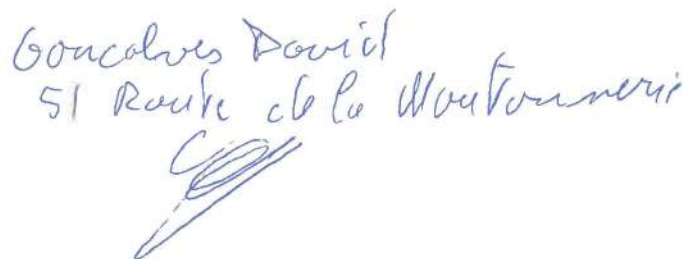 Goncalves David
51 Route de la Moutonnerie